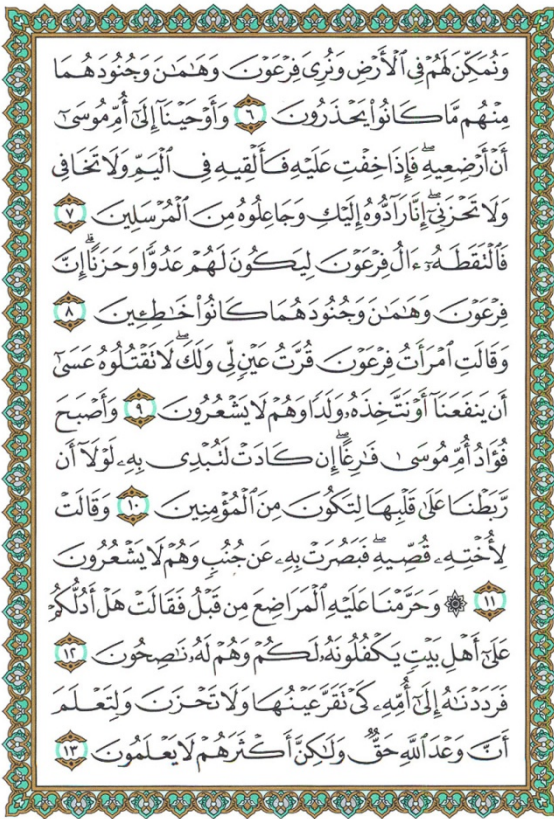 وَنُمَكِّنَ لَهُمْ فِى ٱلْأَرْضِ وَنُرِىَ فِرْعَوْنَ وَهَٰمَٰنَ وَجُنُودَهُمَا
مِنْهُم مَّا كَانُوا۟ يَحْذَرُونَ ٦ وَأَوْحَيْنَآ إِلَىٰٓ أُمِّ مُوسَىٰٓ
أَنْ أَرْضِعِيهِ ۖ فَإِذَا خِفْتِ عَلَيْهِ فَأَلْقِيهِ فِى ٱلْيَمِّ وَلَا تَخَافِى
وَلَا تَحْزَنِىٓ ۖ إِنَّا رَآدُّوهُ إِلَيْكِ وَجَاعِلُوهُ مِنَ ٱلْمُرْسَلِينَ ٧
فَٱلْتَقَطَهُۥٓ ءَالُ فِرْعَوْنَ لِيَكُونَ لَهُمْ عَدُوًّا وَحَزَنًا ۗ إِنَّ
فِرْعَوْنَ وَهَٰمَٰنَ وَجُنُودَهُمَا كَانُوا۟ خَٰطِـِٔينَ ٨
وَقَالَتِ ٱمْرَأَتُ فِرْعَوْنَ قُرَّتُ عَيْنٍ لِّى وَلَكَ ۖ لَا تَقْتُلُوهُ عَسَىٰٓ
أَن يَنفَعَنَآ أَوْ نَتَّخِذَهُۥ وَلَدًا وَهُمْ لَا يَشْعُرُونَ ٩ وَأَصْبَحَ
فُؤَادُ أُمِّ مُوسَىٰ فَٰرِغًا ۖ إِن كَادَتْ لَتُبْدِى بِهِۦ لَوْلَآ أَن
رَّبَطْنَا عَلَىٰ قَلْبِهَا لِتَكُونَ مِنَ ٱلْمُؤْمِنِينَ ١٠ وَقَالَتْ
لِأُخْتِهِۦ قُصِّيهِ ۖ فَبَصُرَتْ بِهِۦ عَن جُنُبٍ وَهُمْ لَا يَشْعُرُونَ
١١ ۞ وَحَرَّمْنَا عَلَيْهِ ٱلْمَرَاضِعَ مِن قَبْلُ فَقَالَتْ هَلْ أَدُلُّكُمْ
عَلَىٰٓ أَهْلِ بَيْتٍ يَكْفُلُونَهُۥ لَكُمْ وَهُمْ لَهُۥ نَٰصِحُونَ ١٢
فَرَدَدْنَٰهُ إِلَىٰٓ أُمِّهِۦ كَىْ تَقَرَّ عَيْنُهَا وَلَا تَحْزَنَ وَلِتَعْلَمَ
أَنَّ وَعْدَ ٱللَّهِ حَقٌّ وَلَٰكِنَّ أَكْثَرَهُمْ لَا يَعْلَمُونَ ١٣